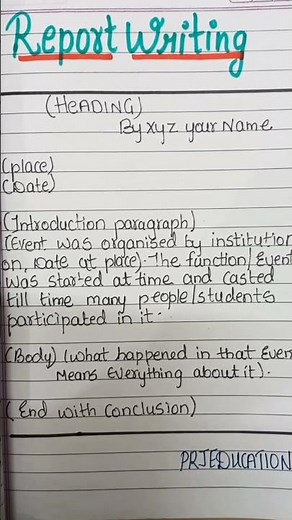 Report Writing
(HEADING)
By xyz your Name.
(place)
(Date)
(Introduction paragraph)
(Event was organised by institution
on, Date at place). The function/Event
was started at time and casted
till time many people/students
participated in it.
(Body) (what happened in that Even
Means Everything about it).
(End with conclusion)
PRJEDUCATION